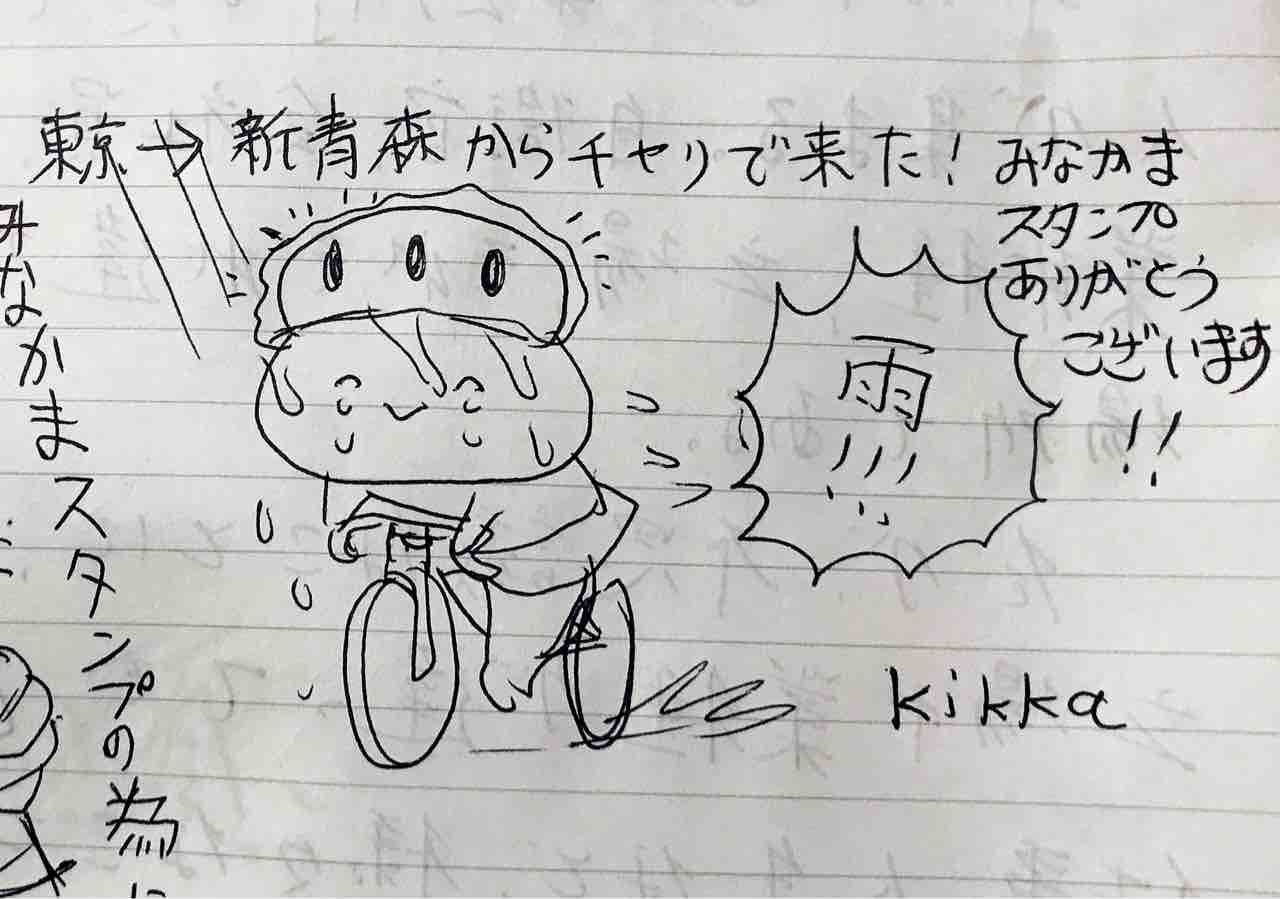 東京→新青森からチャリで来た!みなかま
スタンプ
ありがとう
ございます
!!
雨
kikka
みなかまスタンプの為に